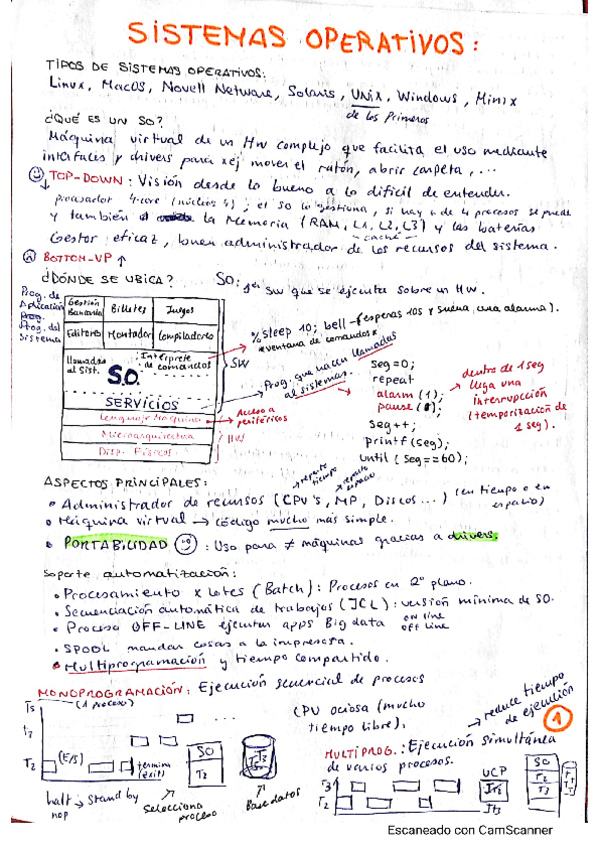 SISTEMAS OPERATIVOS:
TIPOS DE SISTEMAS OPERATIVOS:
Linux, MacOS, Novell Netware, Solaris, UNIX, Windows, Minix
de los primeros
¿QUÉ ES UN SO?
Máquina virtual de un HW complejo que facilita el uso mediante
interfaces y drivers para xej mover el ratón, abrir carpeta, ...
TOP-DOWN: Visión desde lo bueno a lo difícil de entender.
procesador 4-core (núcleos 4); el SO lo gestiona, si hay + de 4 procesos se puede
y también la Memoria (RAM, L1, L2, L3) y las baterías
caché
Gestor eficaz, buen administrador de los recursos del sistema.
BOTTOM-UP ↑
¿DÓNDE SE UBICA?
SO: SW que se ejecuta sobre un HW.
Prog. de Aplicación
Prog. del Sistema
Gestión Bancaria
Billetes
Juegos
Editores
Montador
Compiladores
llamadas al Sist.
Intérprete de comandos
S.O.
SERVICIOS
Lenguaje Máquina
Microarquitectura
Disp. Físicos
SW
HW
Acceso a periféricos
% sleep 10; bell (esperas 10s y suena una alarma).
*ventana de comandos*
Prog. que hacen llamadas al sistemas.
seg=0;
repeat
alarm (1);
pause ( );
seg++;
printf (seg);
until (seg==60);
dentro de 1 seg
llega una
interrupción
(temporización de
1 seg).
ASPECTOS PRINCIPALES:
reparte tiempo
reparte espacio
• Administrador de recursos (CPU's, MP, Discos...) (en tiempo o en espacio)
• Máquina virtual → código mucho más simple.
• PORTABILIDAD : Uso para ≠ máquinas gracias a drivers.
Soporte automatización:
• Procesamiento x lotes (Batch): Procesos en 2º plano.
• Secuenciación automática de trabajos (JCL): versión mínima de SO.
• Proceso OFF-LINE ejecutan apps Big data
on line
off line
• SPOOL mandar cosas a la impresora.
• Multiprogramación y tiempo compartido.
MONOPROGRAMACIÓN: Ejecución secuencial de procesos
(1 proceso)
CPU ociosa (mucho
tiempo libre).
reduce tiempo
de ejecución
1
T2
(E/S)
termina (exit)
SO
T2
halt → stand by
nop
Selecciona proceso
Base datos
MULTIPROG.: Ejecución simultánea
de varios procesos.
T3
T2
UCP
SO
T2
T3
Escaneado con CamScanner